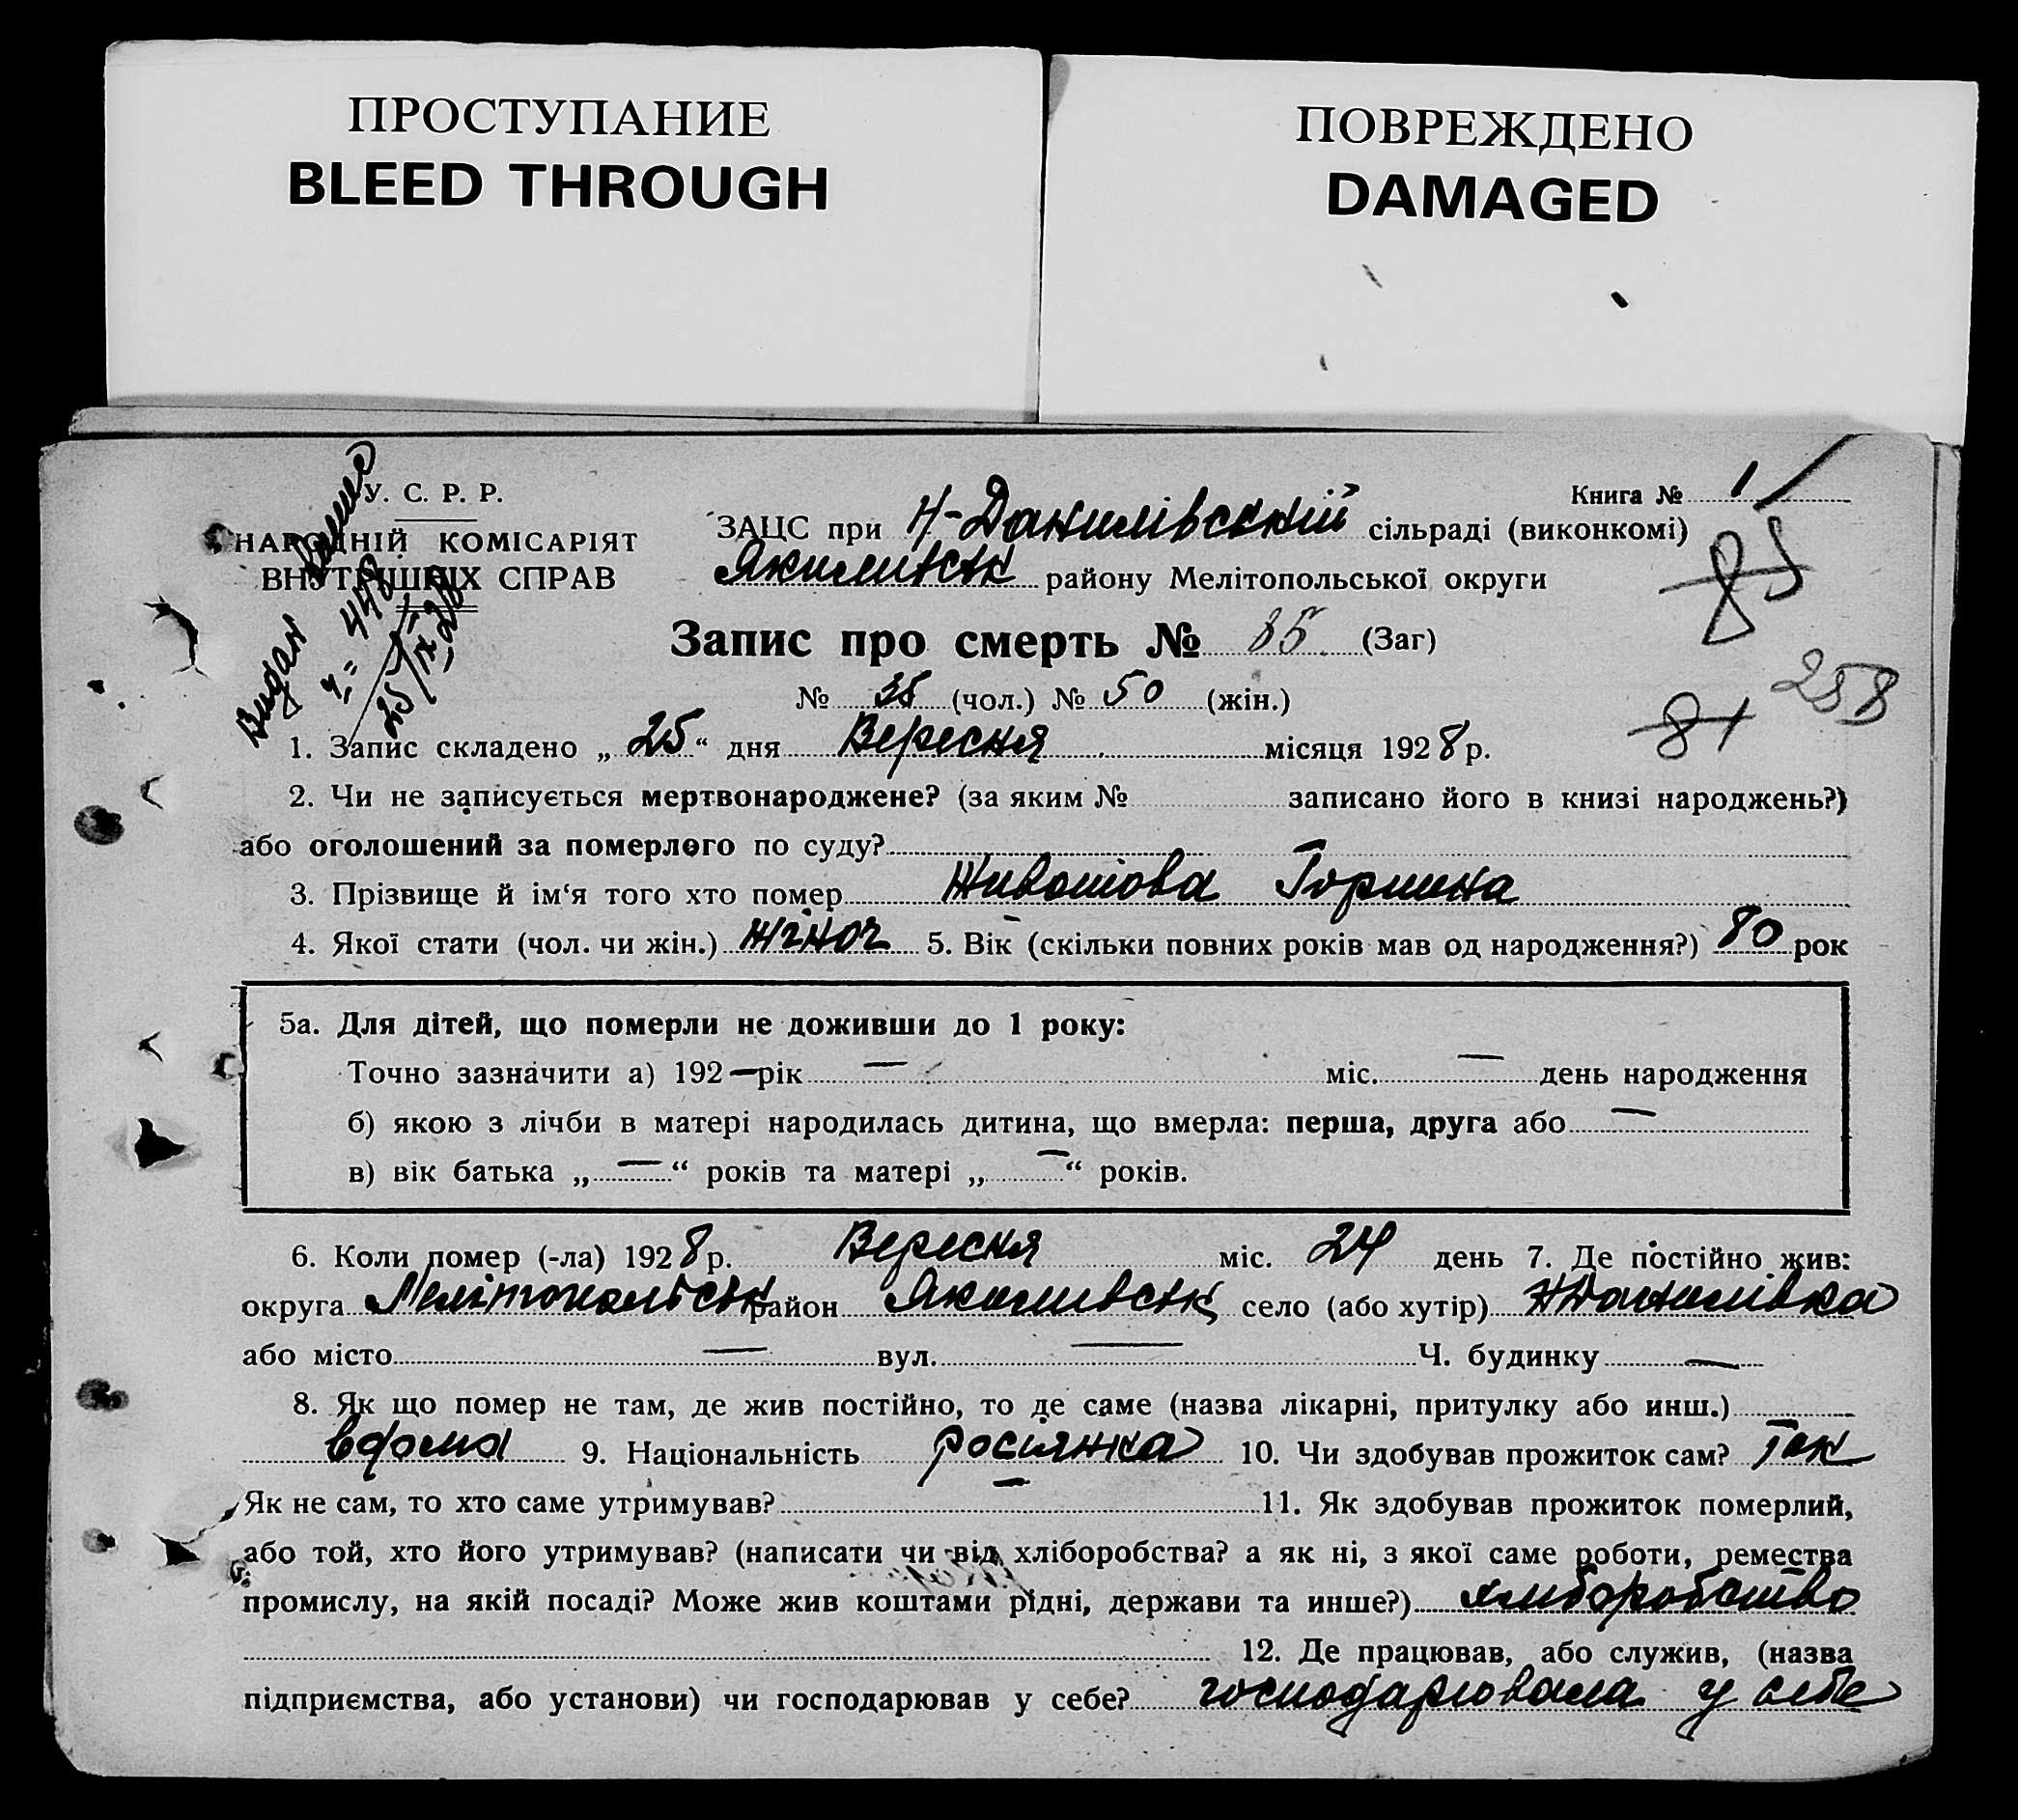 ПРОСТУПАНИЕ
BLEED THROUGH
ПОВРЕЖДЕНО
DAMAGED
У. С. Р. Р.
НАРОДНІЙ КОМІСАРІЯТ
ВНУТРІШНІХ СПРАВ
Видан
25/IX-28
Книга № 1
ЗАЦС при Н-Данилівській сільраді (виконкомі)
Якимівськ району Мелітопольської округи
85
Запис про смерть № 85 (Заг)
№ 35 (чол.) № 50 (жін.)
258
81
1. Запис складено „ 25 “ дня Вересня місяця 1928 р.
2. Чи не записується мертвонароджене? (за яким № записано його в книзі народжень?)
або оголошений за померлого по суду?
3. Прізвище й ім‘я того хто помер
4. Якої стати (чол. чи жін.) жіноч 5. Вік (скільки повних років мав од народження?) 80 рок
5а. Для дітей, що померли не доживши до 1 року:
Точно зазначити а) 192— рік — міс. — день народження
б) якою з лічби в матері народилась дитина, що вмерла: перша, друга або —
в) вік батька „ — “ років та матері „ — “ років.
6. Коли помер (-ла) 1928 р. Вересня міс. 24 день 7. Де постійно жив:
округа Мелітопольськ район Якимівськ село (або хутір) НДанилівка
або місто — вул. — Ч. будинку —
8. Як що помер не там, де жив постійно, то де саме (назва лікарні, притулку або инш.)
вдома 9. Національність росіянка 10. Чи здобував прожиток сам? Так
Як не сам, то хто саме утримував? — 11. Як здобував прожиток померлий,
або той, хто його утримував? (написати чи від хліборобства? а як ні, з якої саме роботи, ремества
промислу, на якій посаді? Може жив коштами рідні, держави та инше?) хліборобство
12. Де працював, або служив, (назва
підприємства, або установи) чи господарював у себе? господарювала у себе